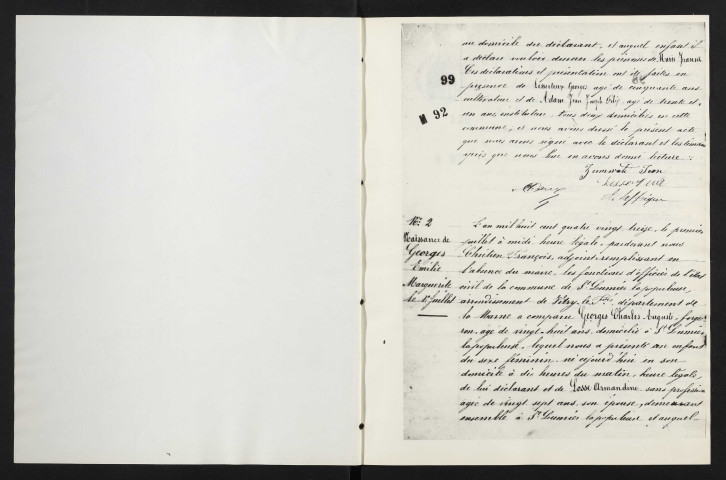 au domicile du déclarant, et auquel enfant il
a déclaré vouloir donner les prénoms de Marie Jeanne
Ces déclarations et présentation ont été faites en
99
présence de Georges agé de cinquante ans
M 92
cultivateur et de Adam Jean Joseph agé de trente et
un ans, instituteur tous deux domiciliés en cette
commune, et nous avons dressé le présent acte
que nous avons signé avec le déclarant et les témoins
après que nous leur en avons donné lecture :
Jean
No 2
L'an mil huit cent quatre vingt treize, le premier
Naissance de
juillet à midi heure légale, pardevant nous
Georges
Chrétien François, adjoint remplissant en
Emilie
l'absence du maire, les fonctions d'officier de l'état
Marguerite
civil de la commune de St Lumier la populeuse,
Le 1er Juillet
arrondissement de Vitry le Fois, département de
la Marne a comparu Georges Charles Auguste, forge-
ron, agé de vingt-huit ans, domicilié à St Lumier
la populeuse, lequel nous a présenté un enfant
du sexe féminin, né cejourd'hui en son
domicile à dix heures du matin, heure légale,
de lui déclarant et de Losse Armandine sans profession
agée de vingt sept ans, son épouse, demeurant
ensemble à St Lumier la populeuse et auquel